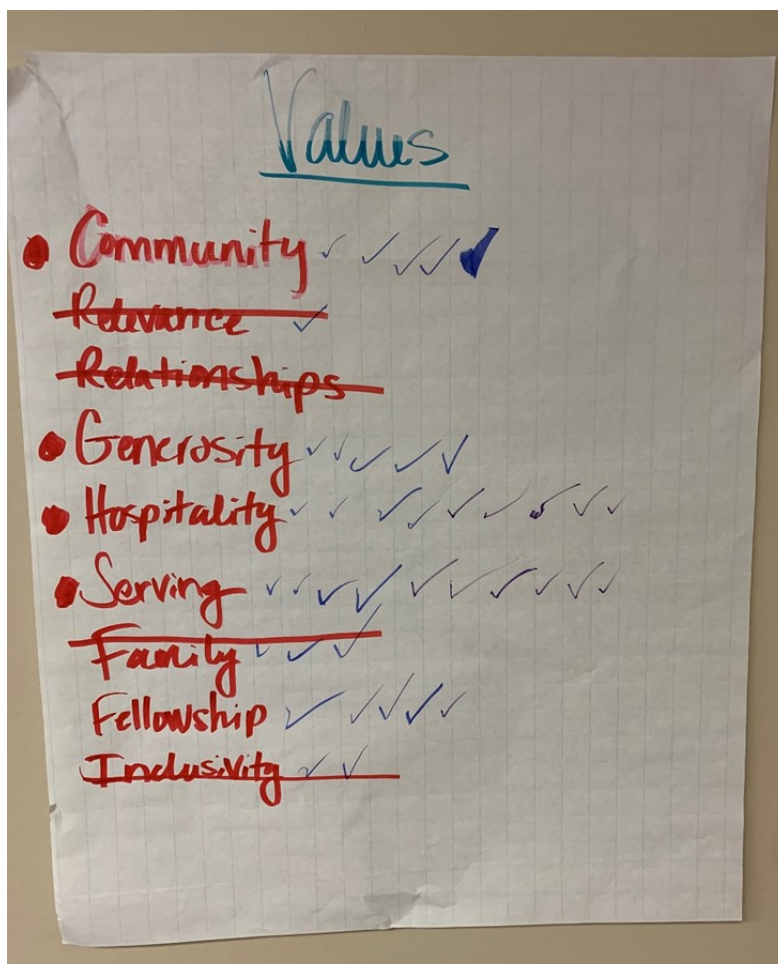 Values
• Community ✓ ✓ ✓ ✓ ✓
Relevance ✓
Relationships
• Generosity ✓ ✓ ✓ ✓ ✓
• Hospitality ✓ ✓ ✓ ✓ ✓ ✓ ✓ ✓ ✓
• Serving ✓ ✓ ✓ ✓ ✓ ✓ ✓ ✓ ✓ ✓
Family ✓ ✓ ✓
Fellowship ✓ ✓ ✓ ✓ ✓
Inclusivity ✓ ✓